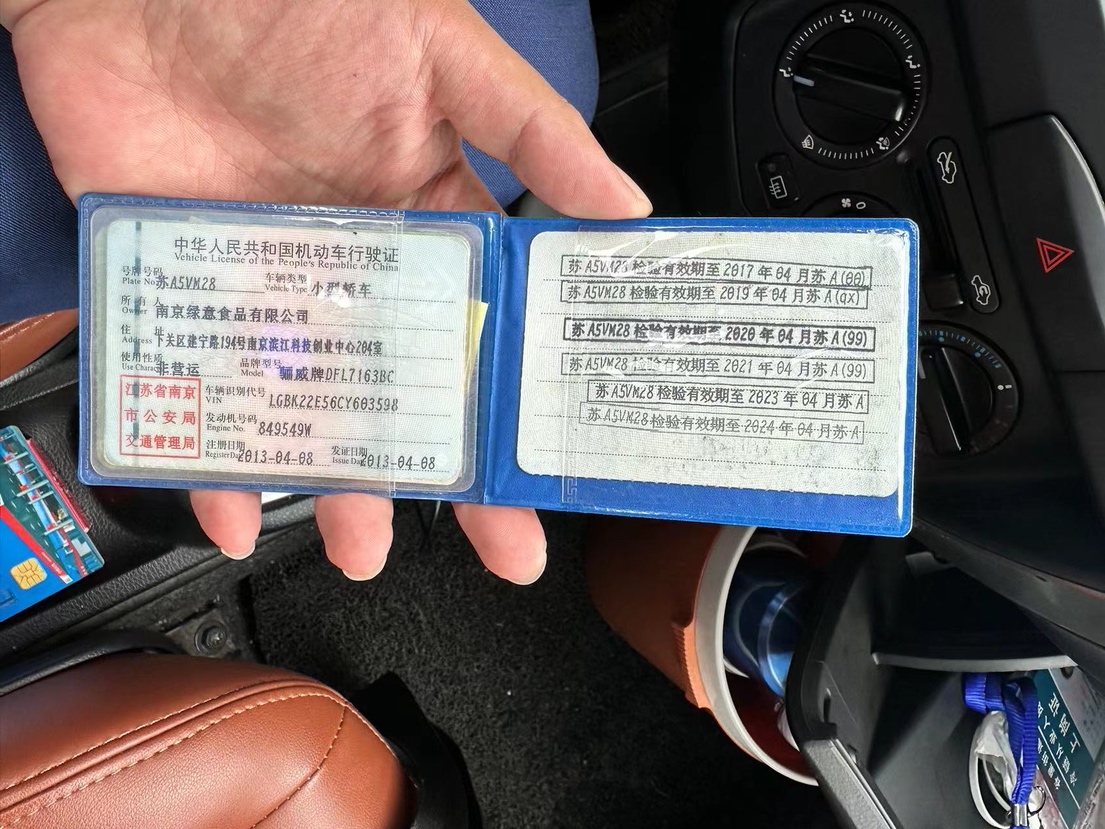 中华人民共和国机动车行驶证
Vehicle License of the People's Republic of China
号牌号码 苏A5VM28 车辆类型 小型轿车
Plate No. Vehicle Type
所有人 南京绿意食品有限公司
Owner
住址 下关区建宁路194号南京滨江科技创业中心204室
Address
使用性质 非营运 品牌型号 骊威牌DFL7163BC
Use Character Model
江苏省南京
市公安局
交通管理局
车辆识别代号 LGBK22E56CY603598
VIN
发动机号码 849549W
Engine No.
注册日期 2013-04-08 发证日期 2013-04-08
Register Date Issue Date
苏A5VM28 检验有效期至2017年04月苏A(00)
苏A5VM28 检验有效期至2019年04月苏A(qx)
苏A5VM28 检验有效期至2020年04月苏A(99)
苏A5VM28 检验有效期至2021年04月苏A(99)
苏A5VM28 检验有效期至2023年04月苏A
苏A5VM28 检验有效期至2024年04月苏A
0
上岗证